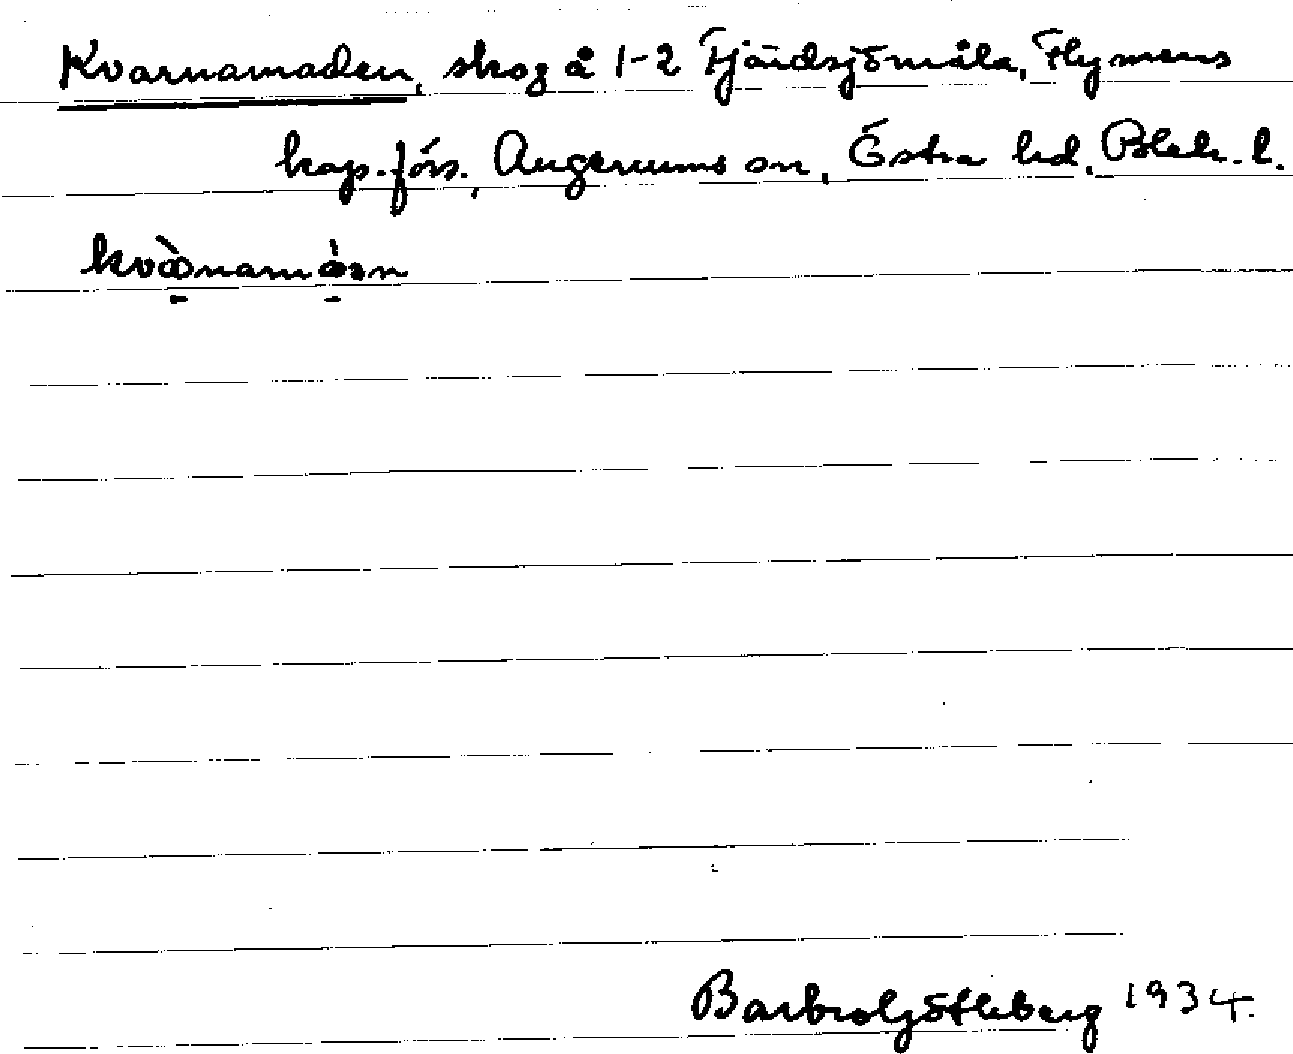 Kvarnamaden, skog å 1-2 Fjärdsjömåla, Flymens
kap.förs., Augerums sn, Östra hd, Blek. l.
Barbro Ljöstleberg 1934.